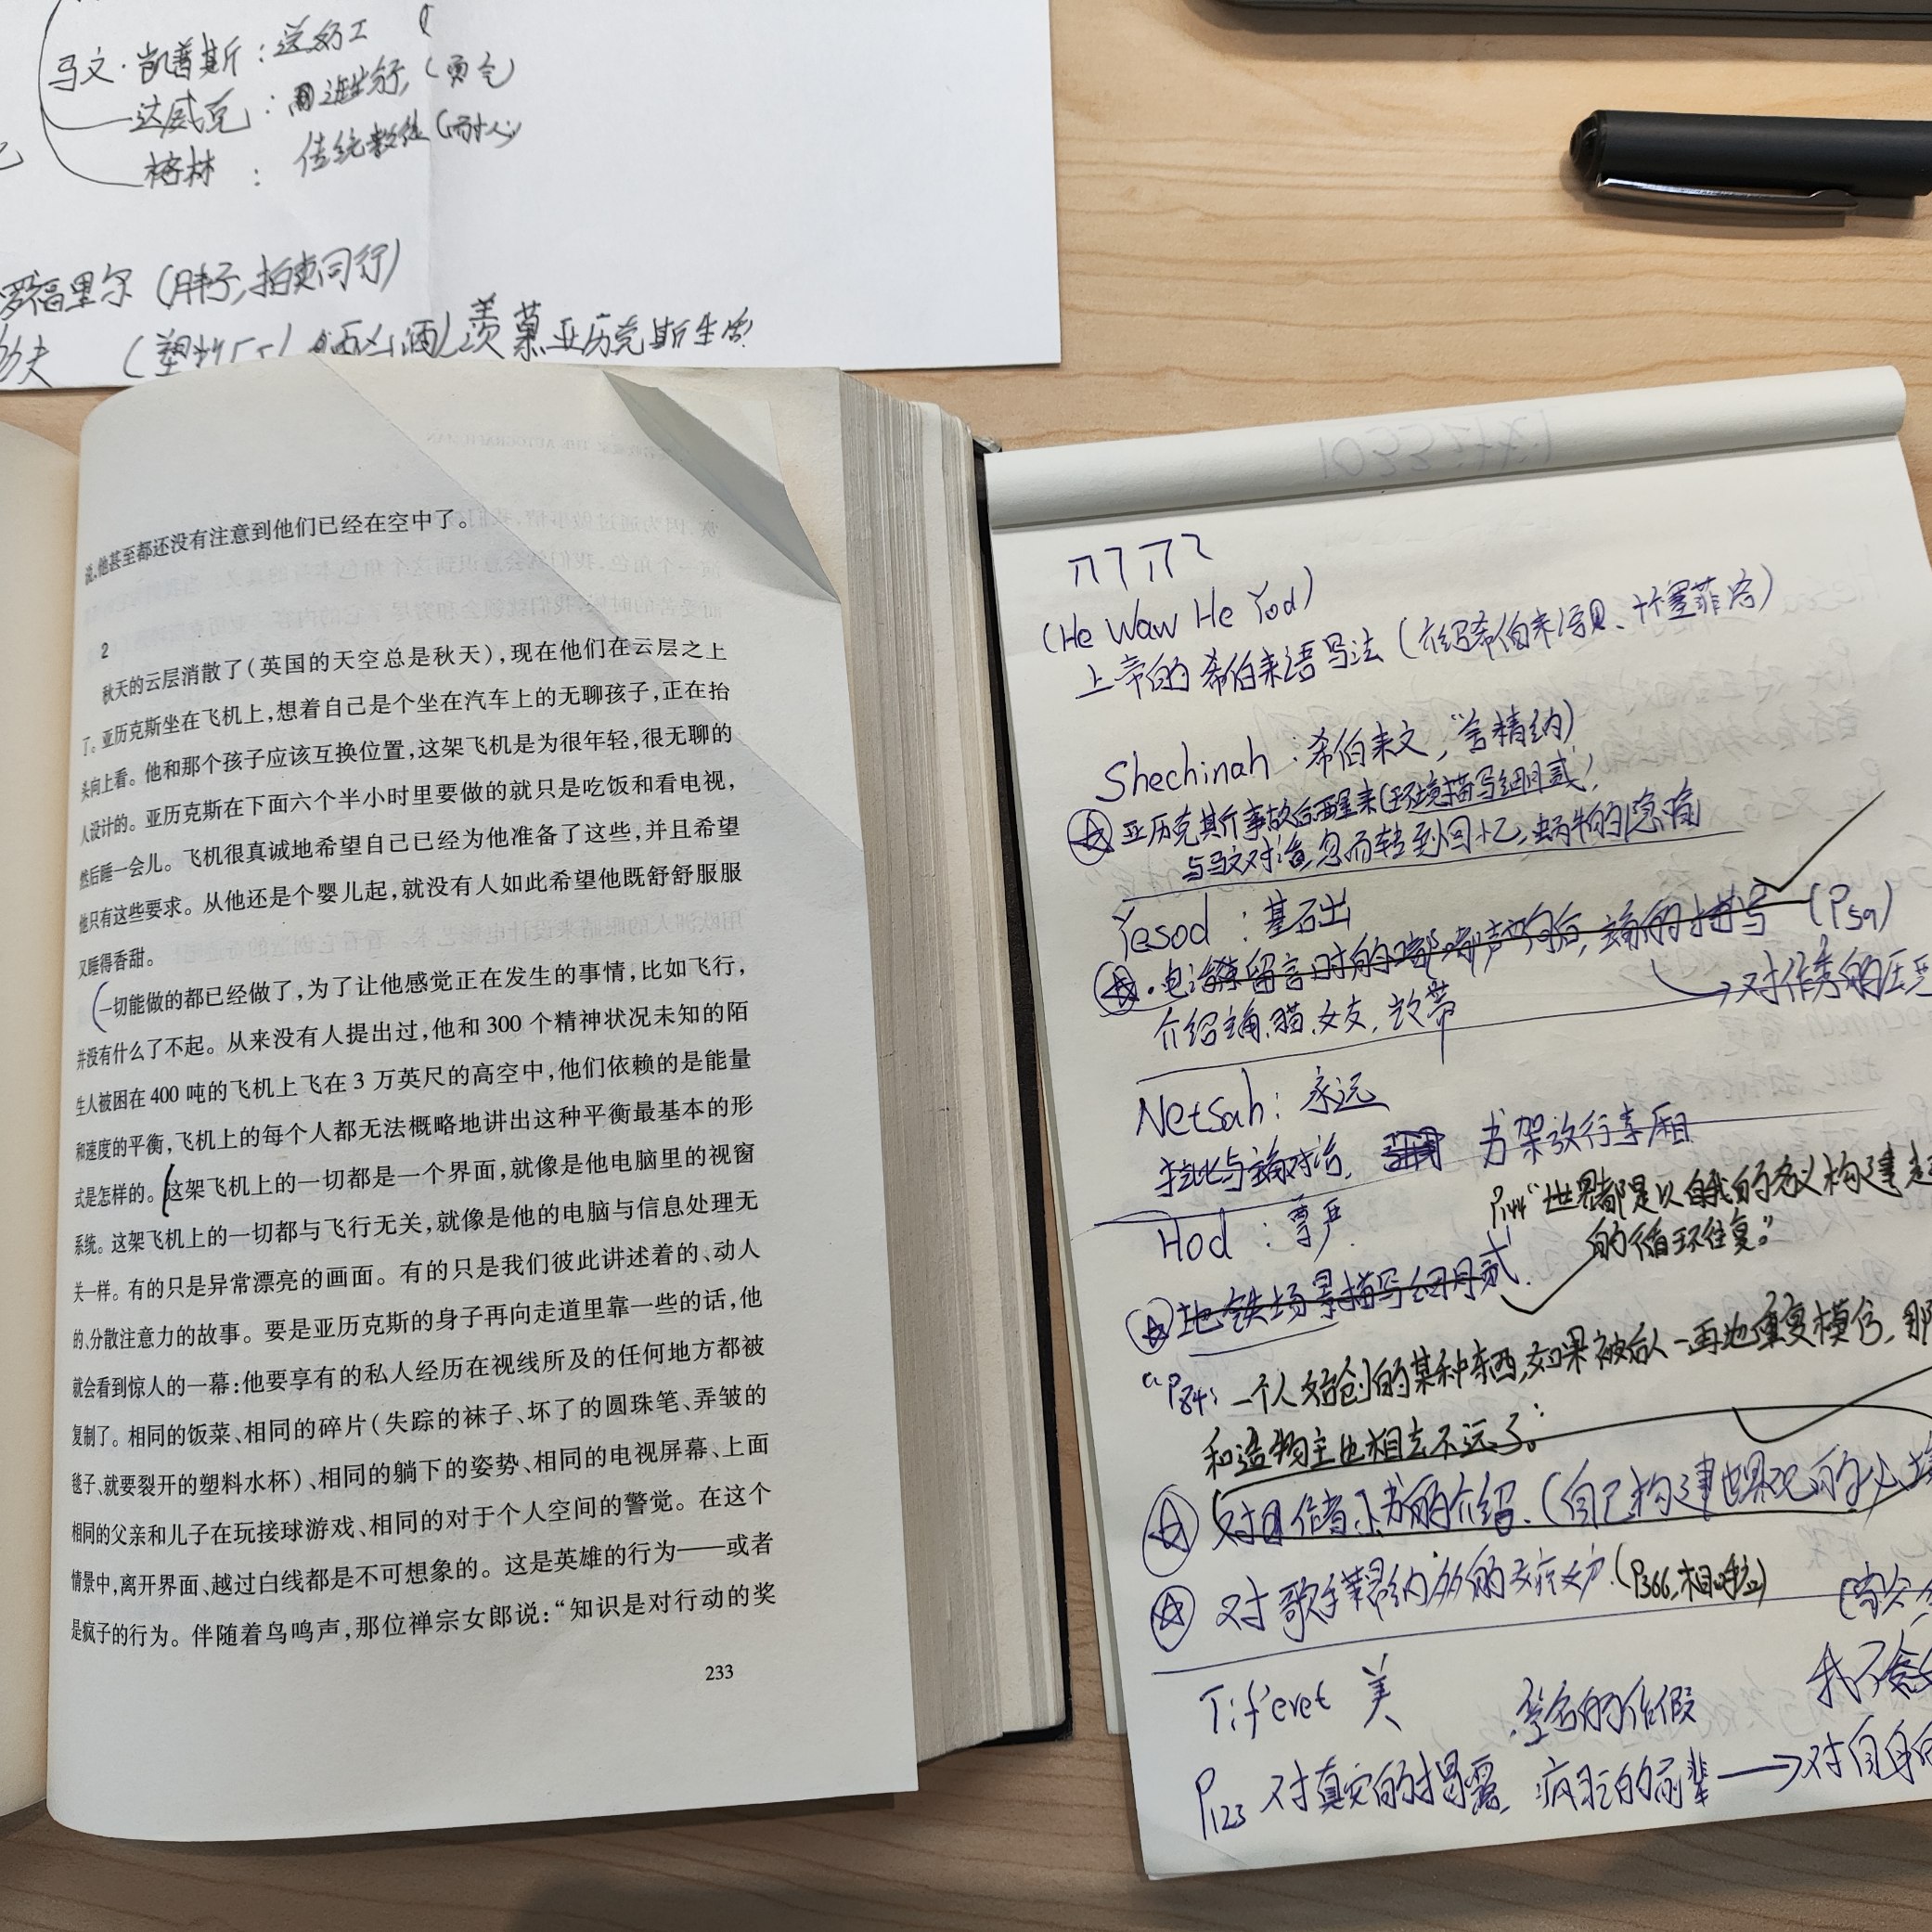 马文·凯普斯：送奶工
达威克：
格林：传统教徒（耐心）
罗福里尔（胖子，拍卖同行）
羡慕亚历克斯生活
说,他甚至都还没有注意到他们已经在空中了。
2
秋天的云层消散了(英国的天空总是秋天),现在他们在云层之上
了。亚历克斯坐在飞机上,想着自己是个坐在汽车上的无聊孩子,正在抬
头向上看。他和那个孩子应该互换位置,这架飞机是为很年轻,很无聊的
人设计的。亚历克斯在下面六个半小时里要做的就只是吃饭和看电视,
然后睡一会儿。飞机很真诚地希望自己已经为他准备了这些,并且希望
他只有这些要求。从他还是个婴儿起,就没有人如此希望他既舒舒服服
又睡得香甜。
一切能做的都已经做了,为了让他感觉正在发生的事情,比如飞行,
并没有什么了不起。从来没有人提出过,他和 300 个精神状况未知的陌
生人被困在 400 吨的飞机上飞在 3 万英尺的高空中,他们依赖的是能量
和速度的平衡,飞机上的每个人都无法概略地讲出这种平衡最基本的形
式是怎样的。这架飞机上的一切都是一个界面,就像是他电脑里的视窗
系统。这架飞机上的一切都与飞行无关,就像是他的电脑与信息处理无
关一样。有的只是异常漂亮的画面。有的只是我们彼此讲述着的、动人
的、分散注意力的故事。要是亚历克斯的身子再向走道里靠一些的话,他
就会看到惊人的一幕:他要享有的私人经历在视线所及的任何地方都被
复制了。相同的饭菜、相同的碎片(失踪的袜子、坏了的圆珠笔、弄皱的
毯子、就要裂开的塑料水杯)、相同的躺下的姿势、相同的电视屏幕、上面
相同的父亲和儿子在玩接球游戏、相同的对于个人空间的警觉。在这个
情景中,离开界面、越过白线都是不可想象的。这是英雄的行为——或者
是疯子的行为。伴随着鸟鸣声,那位禅宗女郎说:“知识是对行动的奖
233
(He Waw He Yod)
上帝的希伯来语写法（介绍希伯来语贝、十个塞菲洛）
Shechinah：希伯来文，“舍精纳）
亚历克斯事故后醒来（环境描写细腻）
与马文对话，忽而转到回忆，蜗牛的隐喻
Yesod：基石出
电话留言时的嘟嘟声响后，主角的描写（P59）
对作秀的压
介绍主角，猫，女友，
Netsah：永远
主角对话，书架放行李厢
Hod：尊严
P144“世界都是以自我的名义构建起
的循环往复。”
地铁场景描写细腻.
“P84：一个人始创的某种东西，如果被后人一再地重复模仿，那
和造物主也相去不远了。
对作者小书的介绍.（自己构建世界观的
对歌手弗纳多的（P366，相呼应）
Tiferet 美
签名的作假
我不会
P123 对真实的揭露. 疯狂的前辈→对自身